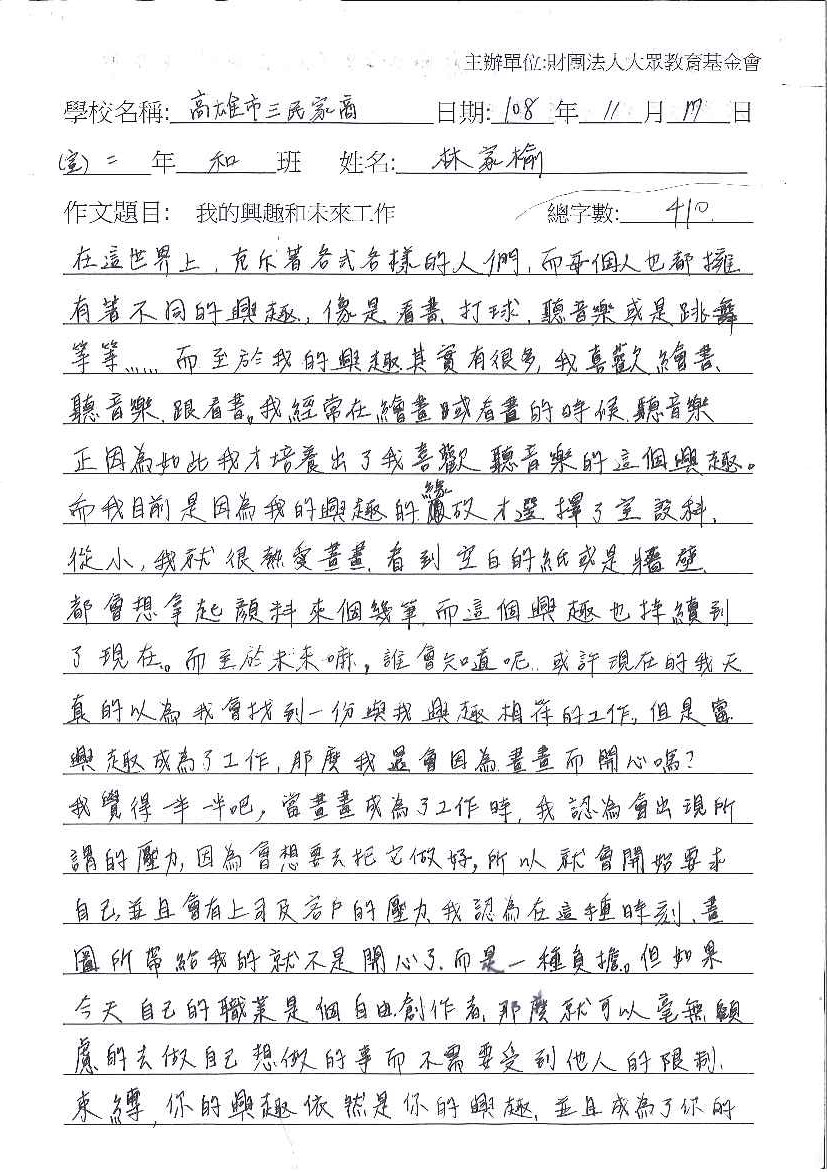 主辦單位:財團法人大眾教育基金會
學校名稱: 高雄市三民家商 日期: 108 年 11 月 17 日
(室) 二 年 和 班 姓名: 林家榆
作文題目: 我的興趣和未來工作 總字數: 410
在這世界上，充斥著各式各樣的人們，而每個人也都擁
有著不同的興趣，像是、看書、打球、聽音樂或是跳舞
等等……而至於我的興趣其實有很多，我喜歡繪畫、
聽音樂、跟看書。我經常在繪畫或看書的時候、聽音樂
正因為如此我才培養出了我喜歡聽音樂的這個興趣。
而我目前是因為我的興趣的緣故才選擇了室設科，
從小，我就很熱愛畫畫、看到空白的紙或是牆壁、
都會想拿起顏料來個幾筆，而這個興趣也持續到
了現在。而至於未來嘛，誰會知道呢、或許現在的我天
真的以為我會找到一份與我興趣相符的工作，但是當
興趣成為了工作，那麼我還會因為畫畫而開心嗎？
我覺得一半一半吧，當畫畫成為了工作時，我認為會出現所
謂的壓力，因為會想要去把它做好，所以就會開始要求
自己，並且會有上司及客戶的壓力、我認為在這種時刻、畫
圖所帶給我的就不是開心了、而是一種負擔。但如果
今天自己的職業是個自由創作者、那麼就可以毫無顧
慮的去做自己想做的事而不需要受到他人的限制、
束縛，你的興趣依然是你的興趣，並且成為了你的